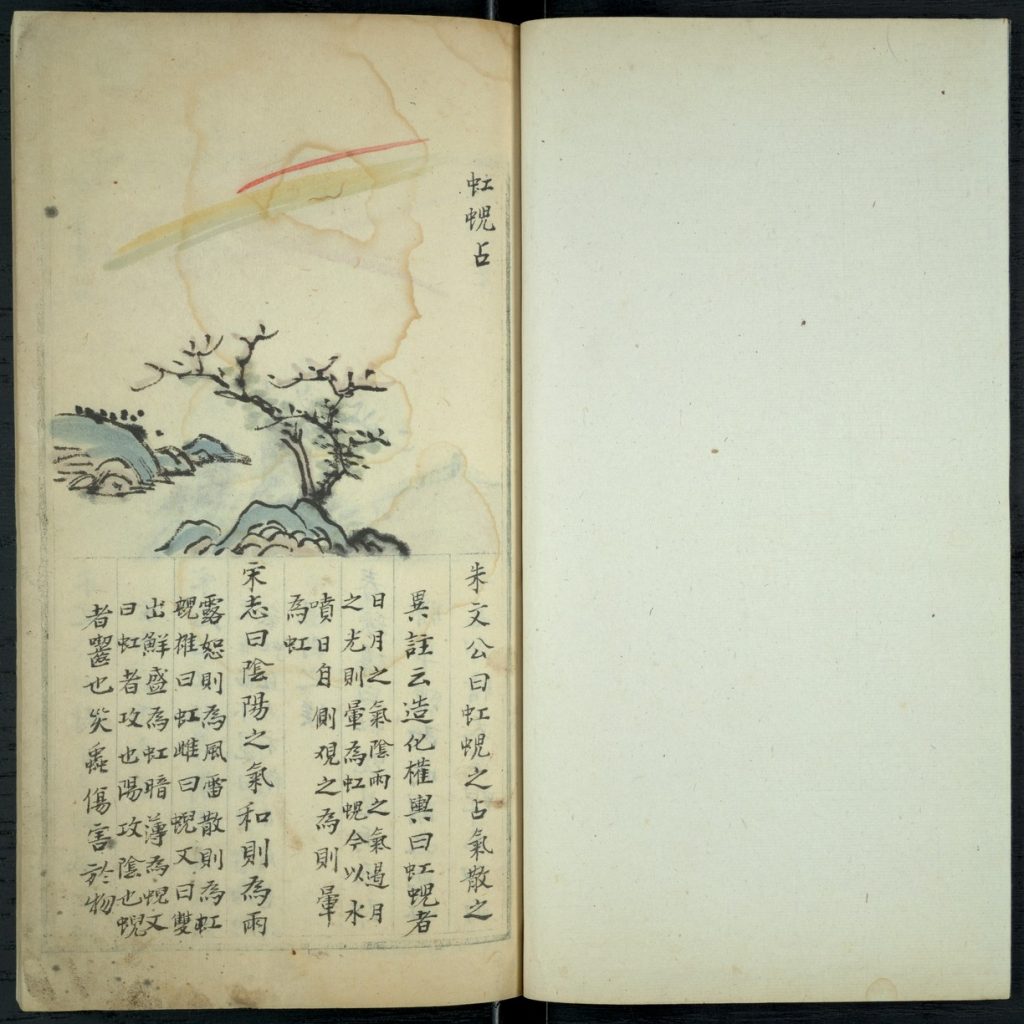 虹蜺占
朱文公曰虹蜺之占氣散之
異註云造化權輿曰虹蜺者
日月之氣陰雨之氣過月
之光則暈為虹蜺今以水
噴日自側視之為則暈
為虹
宋志曰陰陽之氣和則為雨
露恕則為風雷散則為虹
蜺雄曰虹雌曰蜺又曰雙
出鮮盛為虹暗薄為蜺又
曰虹者攻也陽攻陰也蜺
者齧也災蟲傷害於物